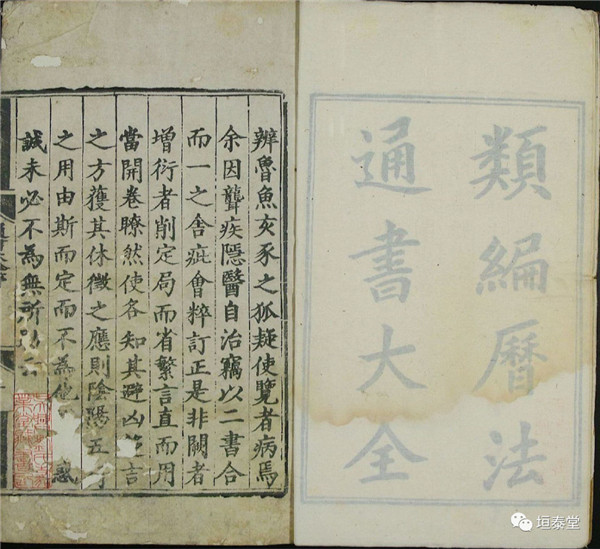 類編曆法
通書大全
辨魯魚亥豕之狐疑使覽者病焉
余因聾疾隱醫自治竊以二書合
而一之舍疵會粹訂正是非闕者
增衍者削定局而省繁言直而用
當開卷瞭然使各知其避凶
之方獲其休徵之應則陰陽五
之用由斯而定而不為他惑
誠未必不為無所
垣泰堂